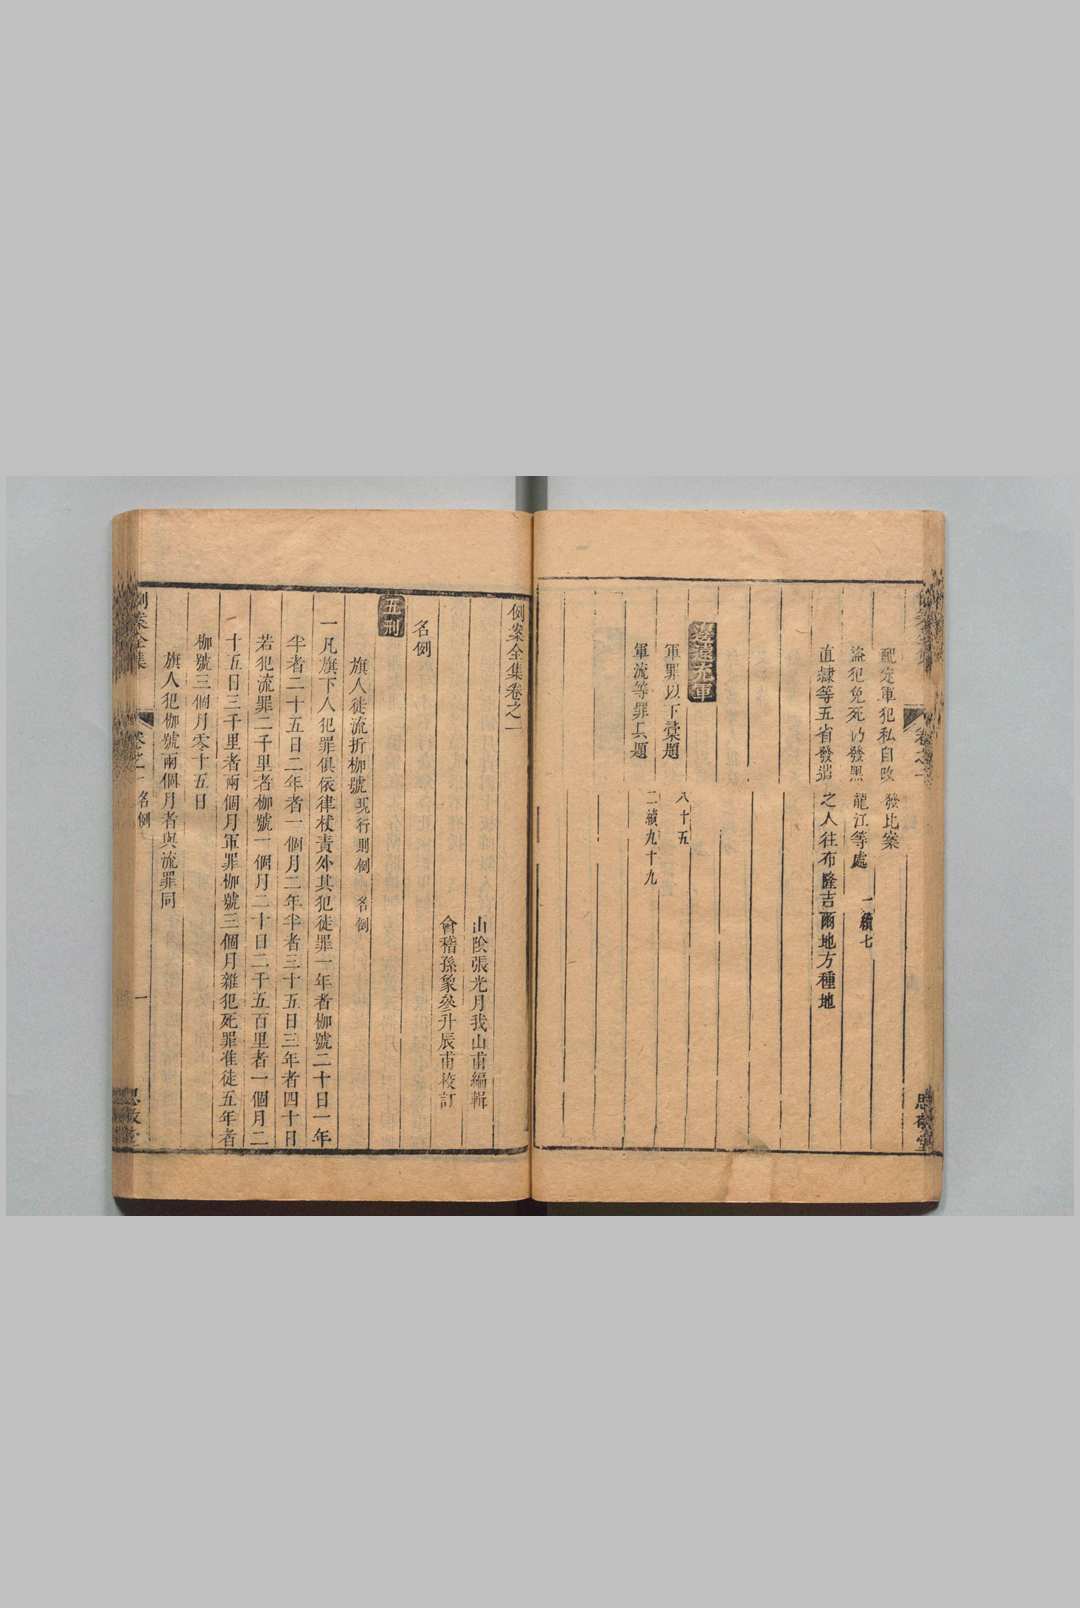 配定軍犯私自改發比案
盜犯免死仍發黑龍江等處 一續七
直隷等五省發遣之人往布隆吉爾地方種地
邊遠充軍
軍罪以下彚題 八十五
軍流等罪彙題 二續九十九
卷之一
思敬堂
例案全集卷之一
山陰張光月我山甫編輯
會稽孫象參升辰甫校訂
名例
五刑
旗人徒流折枷號 現行則例 名例
一凡旗下人犯罪俱依律杖責外其犯徒罪一年者枷號二十日一年
半者二十五日二年者一個月二年半者三十五日三年者四十日
若犯流罪二千里者枷號一個月二十日二千五百里者一個月二
十五日三千里者兩個月軍罪枷號三個月雜犯死罪准徒五年者
枷號三個月零十五日
旗人犯枷號兩個月者與流罪同
例案全集 卷之一 名例 一 思敬堂